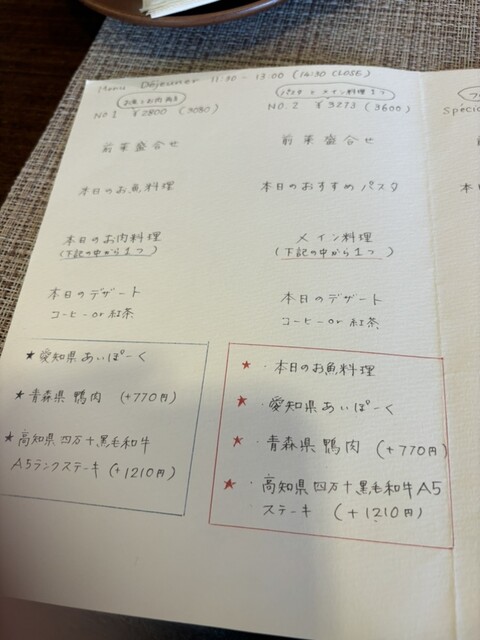 Menu Déjeuner 11:30 - 13:00 (14:30 CLOSE)
お魚とお肉両方
NO.1 ¥2800 (3080)
前菜盛合せ
本日のお魚料理
本日のお肉料理
(下記の中から1つ)
本日のデザート
コーヒーor紅茶
★愛知県あいぽーく
★青森県鴨肉 (+770円)
★高知県四万十黒毛和牛
A5ランクステーキ(+1210円)
パスタとメイン料理1つ
NO.2 ¥3273 (3600)
前菜盛合せ
本日のおすすめパスタ
メイン料理
(下記の中から1つ)
本日のデザート
コーヒーor紅茶
★・本日のお魚料理
★・愛知県あいぽーく
★・青森県鴨肉 (+770円)
★・高知県四万十黒毛和牛A5
ステーキ (+1210円)
Specia
本